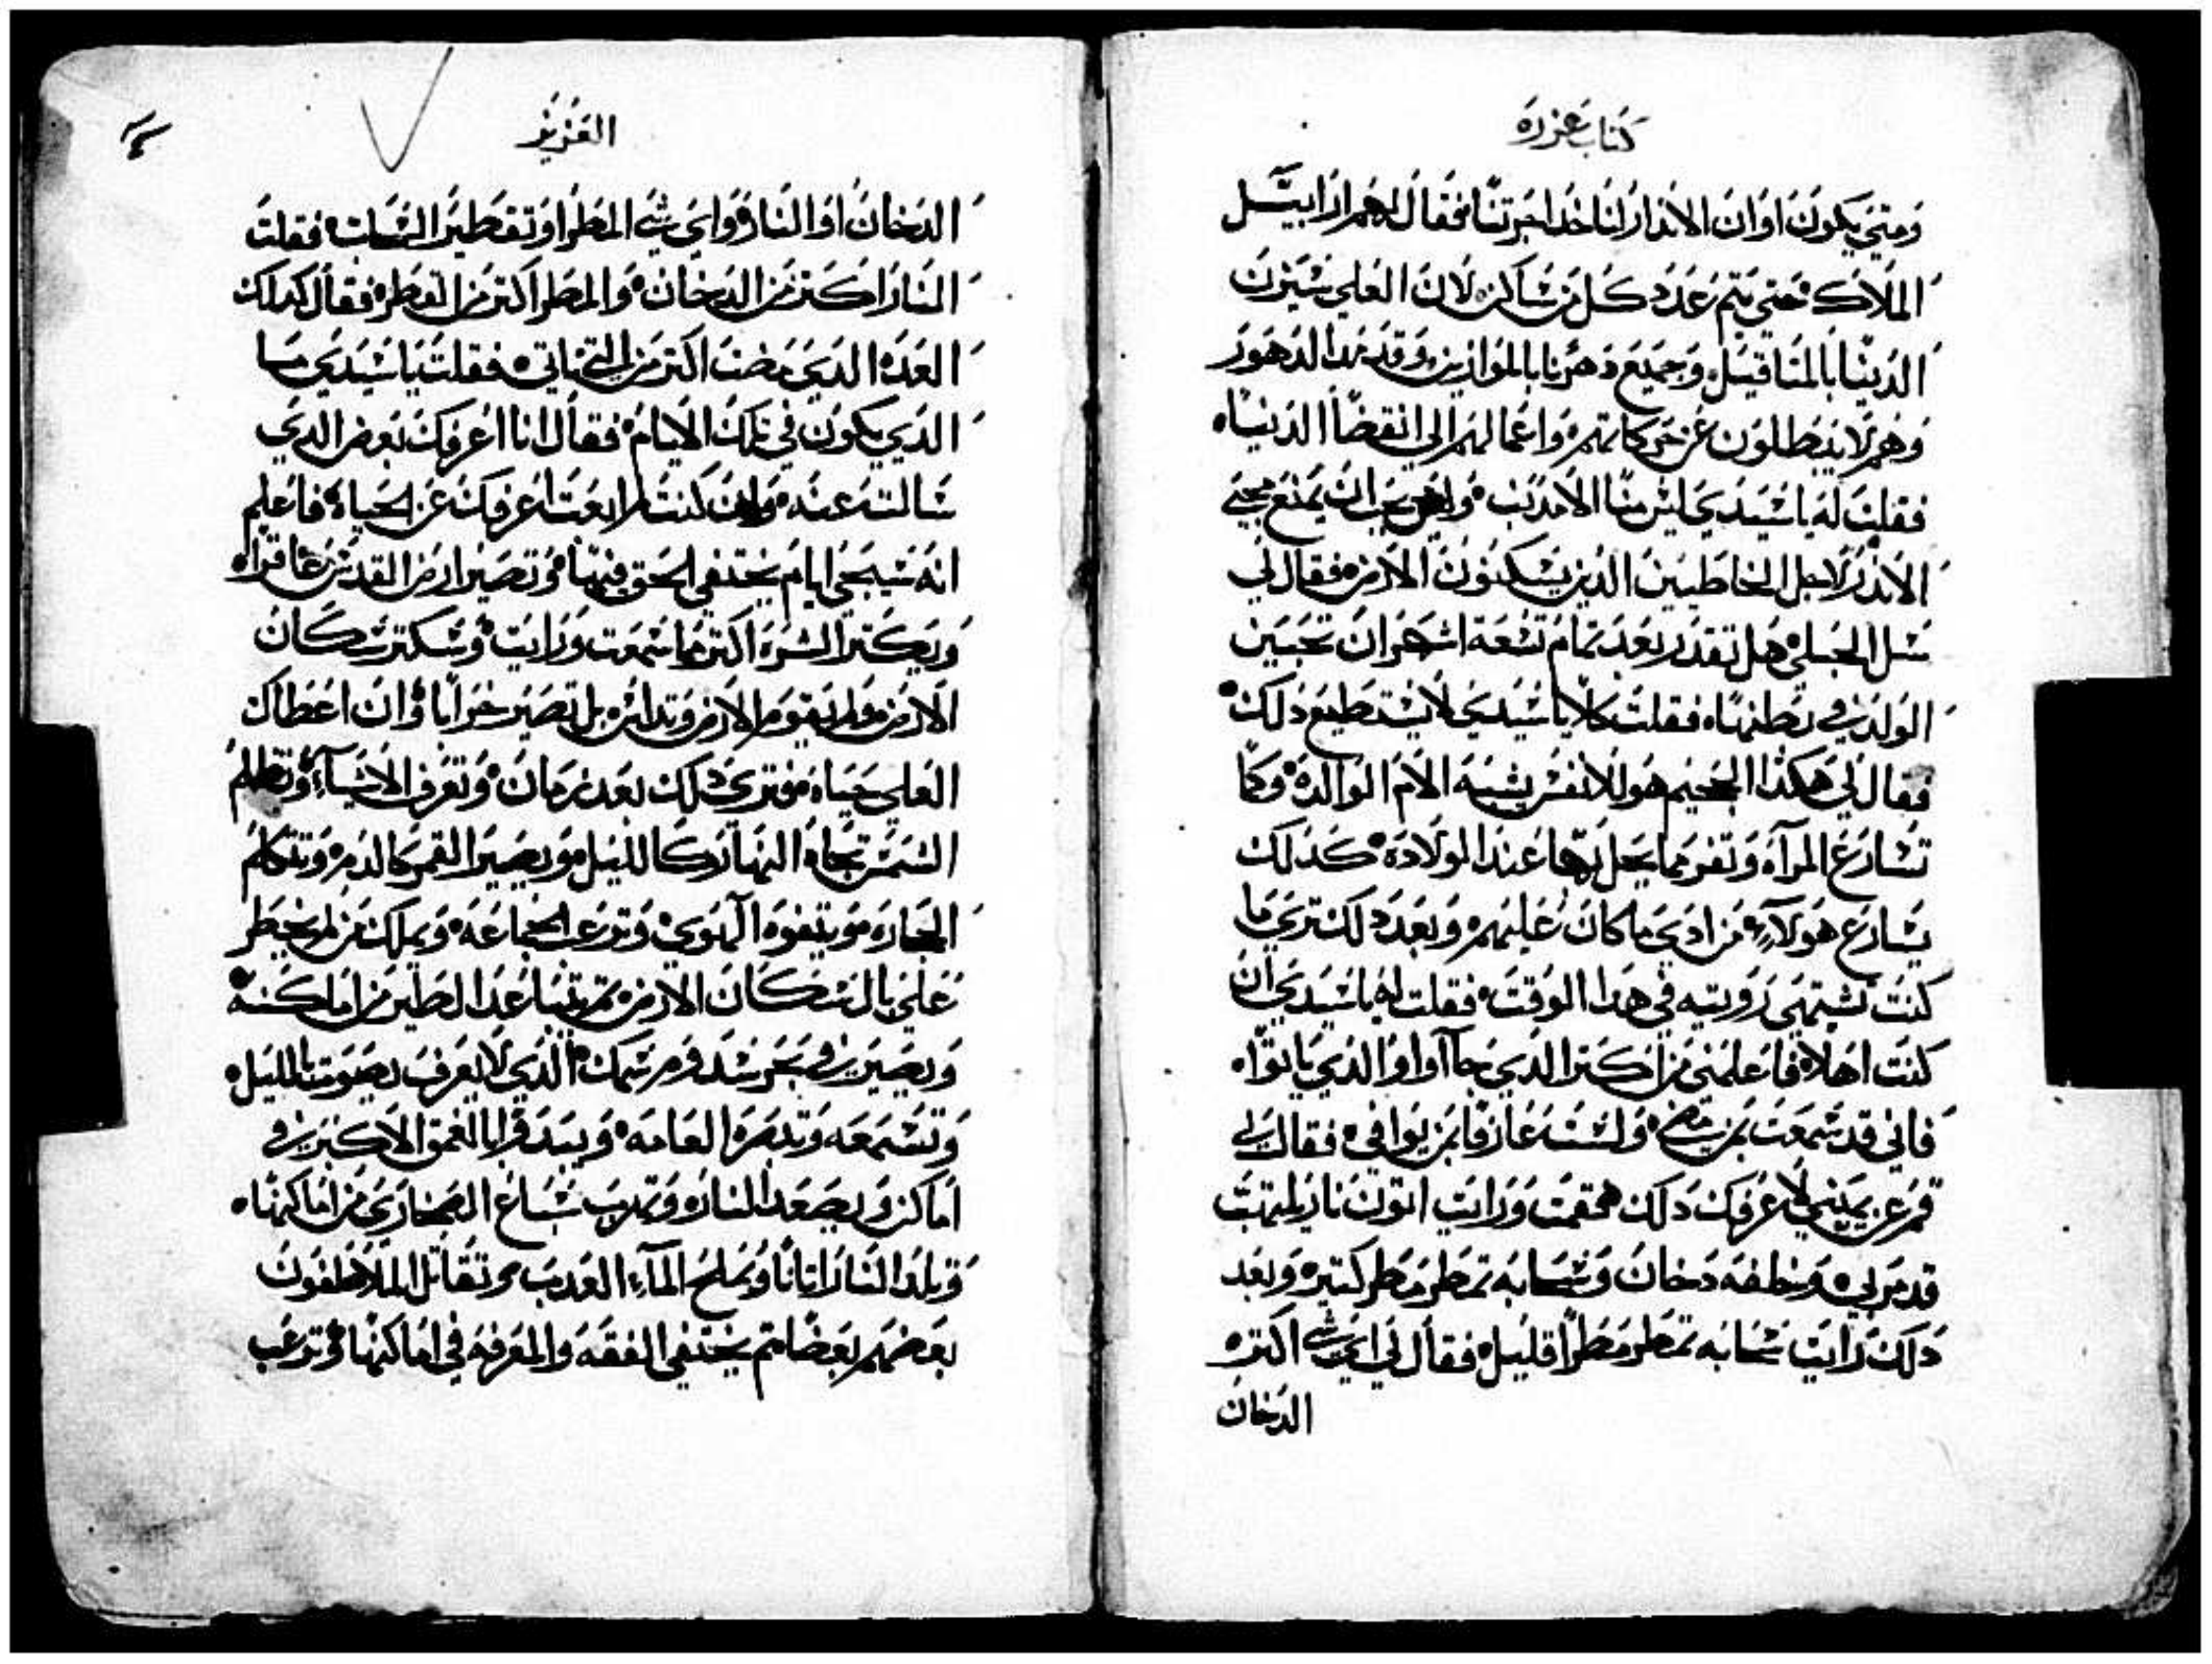 كتاب عزره
ومتي يكون اوان الاندار لنا خدا اجرتنا فقال لهم ارابييل
الملاك حتي يتم عدد كل من شاكن لان العلي سيزن
الدنيا بالمثاقيل وجميع دهرنا بالموازين وقد هدا الدهور
وهم لا يبطلون عن حركاتهم واعمالهم الي انقضا الدنياه
فقلت له ياسيدي ليس منا الا مدنب يجب ان يمنع مجي
الاندر لاجل الخاطيين الدين يسكنون الارض فقال لي
سل الحبلي هل تقدر بعد تمام تسعة اشهر ان تحبس
الولد في بطنها فقلت كلا ياسيدي لا يستطيع دلك
فقال لي هكدا الجحيم هو للانفس يشبه الام الوالدة وكما
تسارع المراه وتفر مما يحل بها عند الولاده كدلك
يسارع هولاء من ادي ما كان عليهم وبعد دلك تري ما
كنت تشتهي رويته في هدا الوقت فقلت له ياسيدي ان
كنت اهلا فاعلمني من اكتر الدي جاآوا او الدي ياتوا
فاني قد سمعت بمن مضي ولست عارفا بمن يوافي فقال لي
قم عن يميني لاعرفك دلك فقمت ورايت اتون نار يلتهب
قد مر بي وخلفه دخان وسحابه تمطر مطر كتير وبعد
دلك رايت سحابه تمطر مطرا قليل فقال لي اي شي اكتر
الدخان
العزيز
الدخان او النار واي شي المطر او تقطير السحاب فقلت
النار اكتر من الدخان والمطر اكتر من القطر فقال كدلك
العده الدي مضت اكتر من التي تاتي فقلت ياسيدي ما
الدي يكون في تلك الايام فقال انا اعرفك بعض الدي
سالت عنه وان كنت لم ابعت اعرفك عن الحياة فاعلم
انه سيجي ايام يختفي الحق فيها وتصير ارض القدس عاقراه
ويكتر الشره اكتر مما سمعت ورايت وسكتر سكان
الارض ولم يقوم الارض وتداس بل تصير خرابا وان اعطاك
العلي حياه فتري دلك بعد زمان وتعرف الاشياء وتظلم
الشمس تجاه النهار كالليل ويصير القمر كالدم وتتكلم
الحجاره ويتفوه الهوي وترعب الجماعه ويملك من لم يخطر
علي بال سكان الارض تم يتباعد الطير من اماكنه
ويصير في بحر سدوم سمك الدي لا يعرف بصوت بالليل
وتسمعه وتدمره العامه ويبتدفرا بالعمق الاكبر في
اماكن ويصعد النار وتهرب سباع الصحاري من اماكنها
وتلد النسا اتانا ويملح الماء العدب وتقاتل المتلاطفون
بعضهم بعضا تم يختفي الفقه والمعرفه في اماكنها وترعب